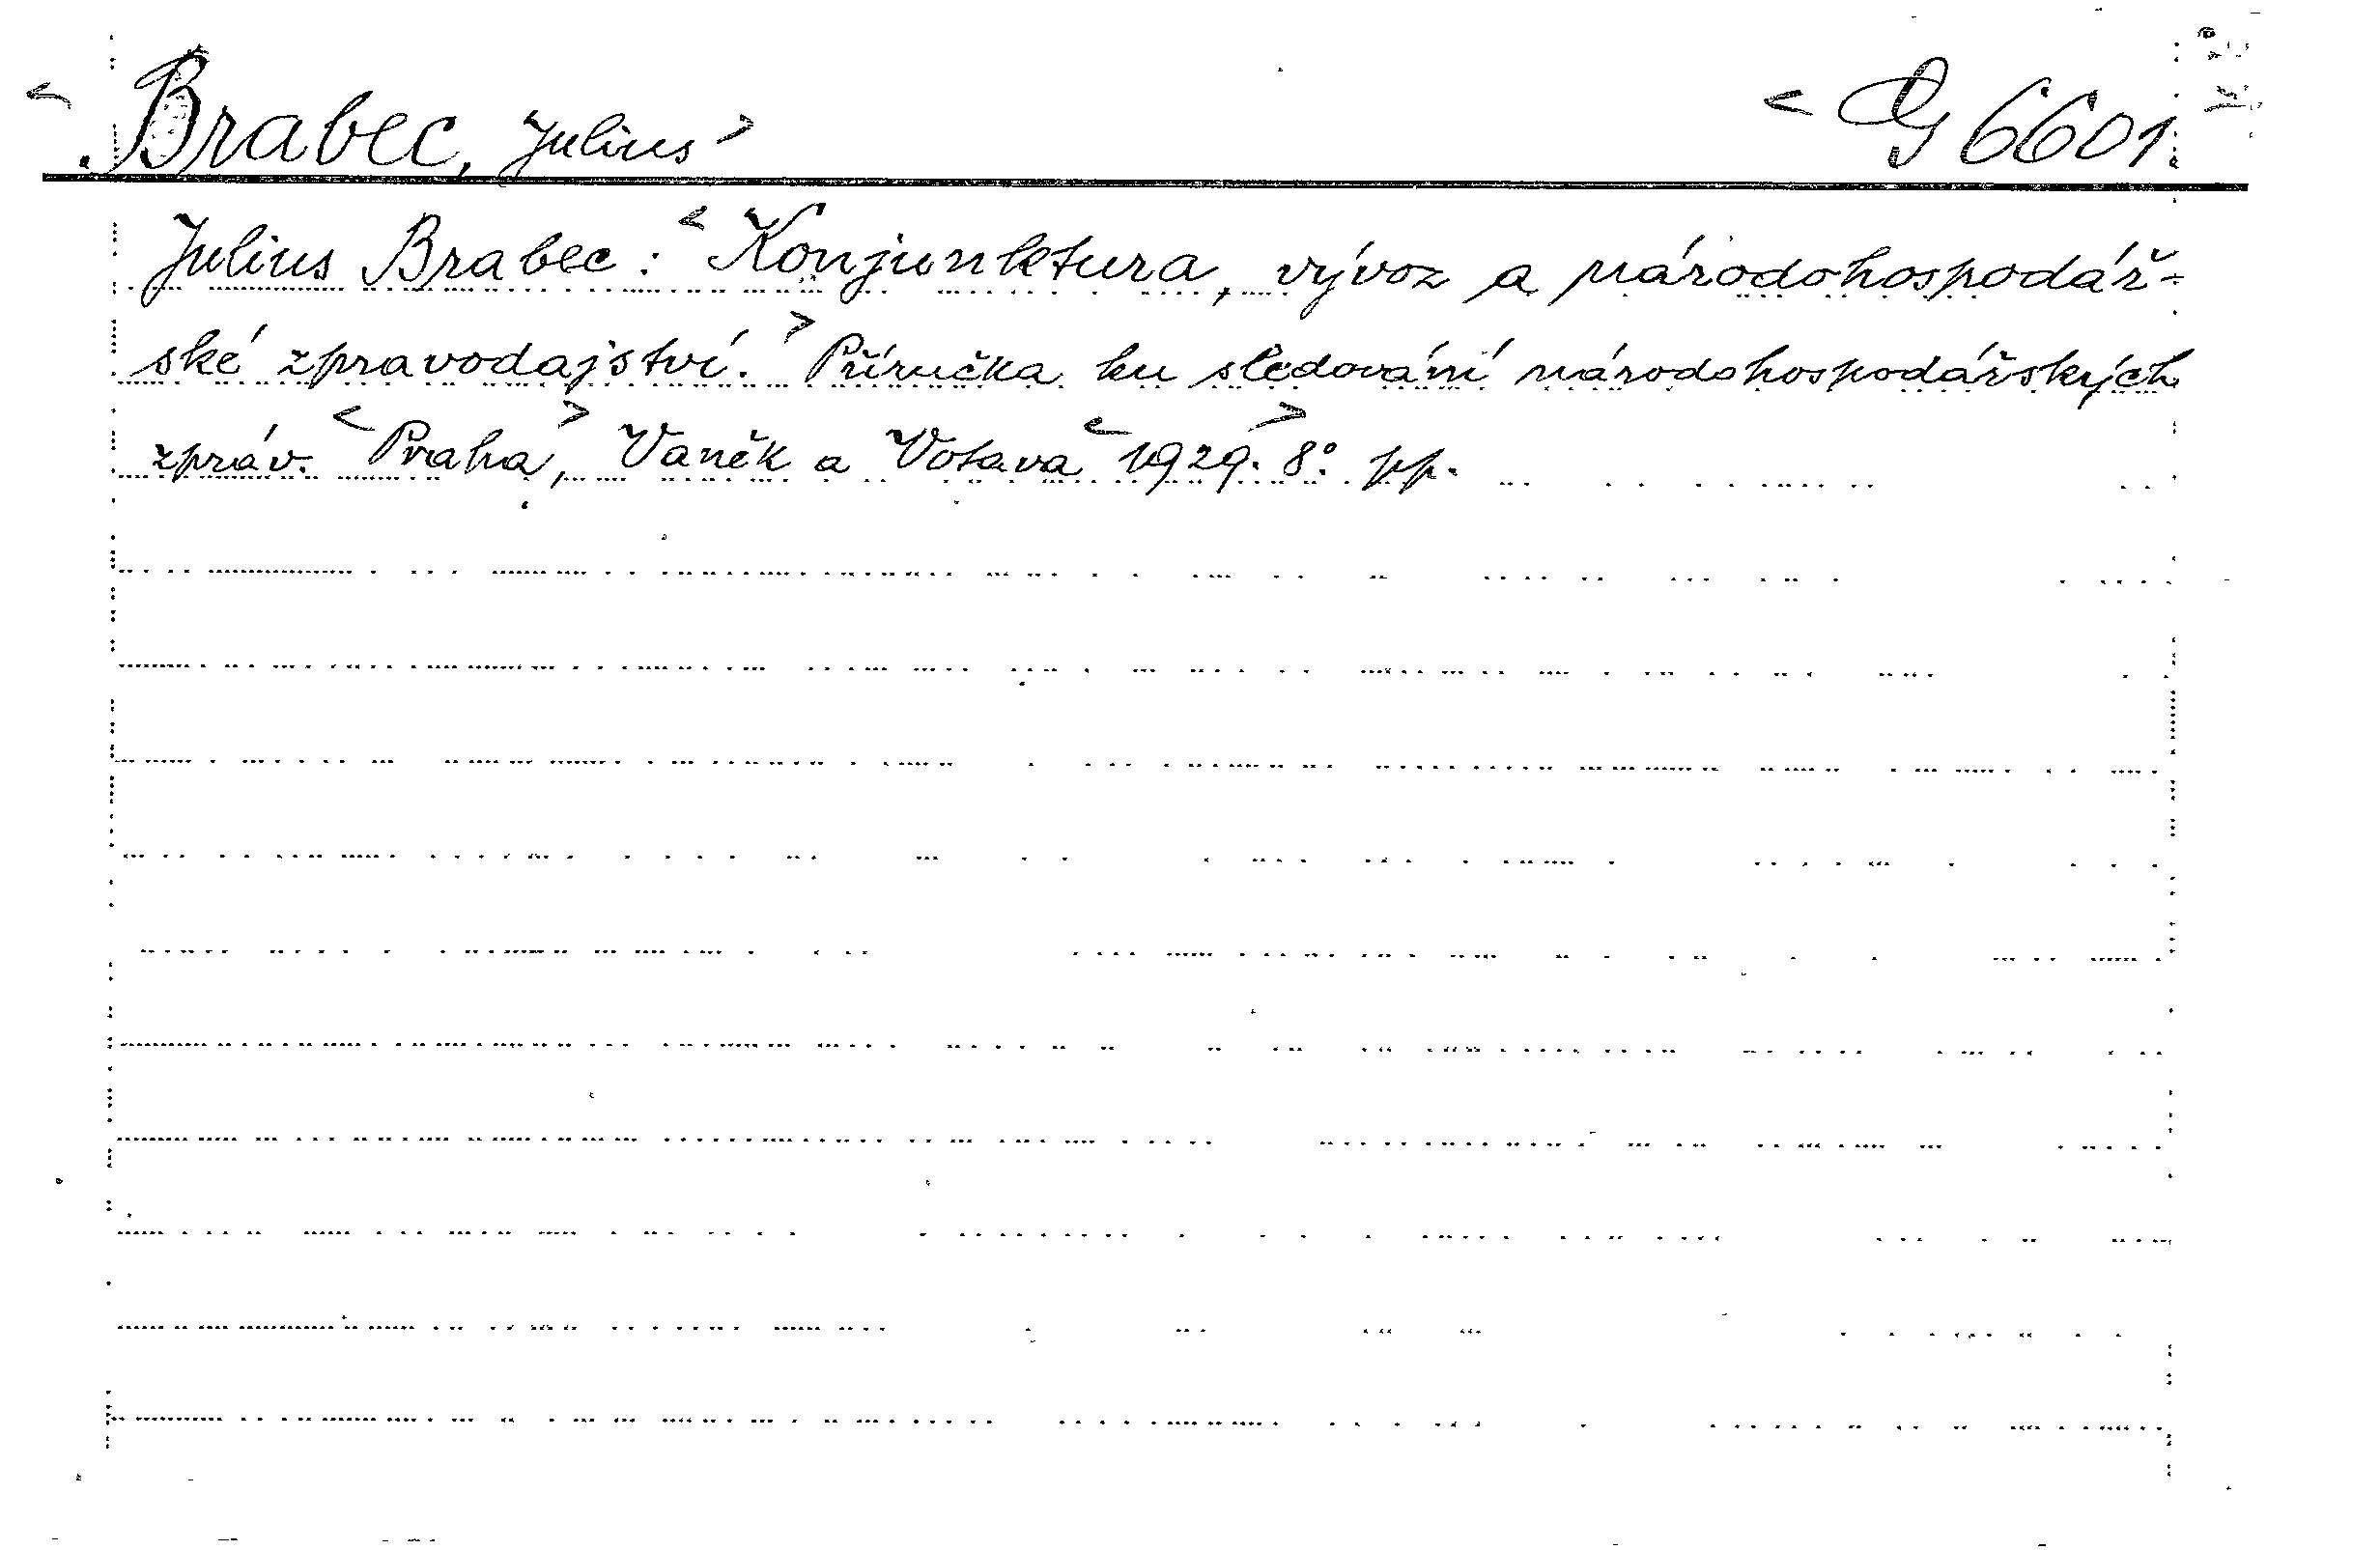 < Brabec, Julius > < G 6601.
Julius Brabec: < Konjunktura, vývoz a národohospodář-
ské zpravodajství. > Příručka ku sledování národohospodářských
zpráv. < Praha >, Vaněk a Votava < 1929. > 8°. pp.